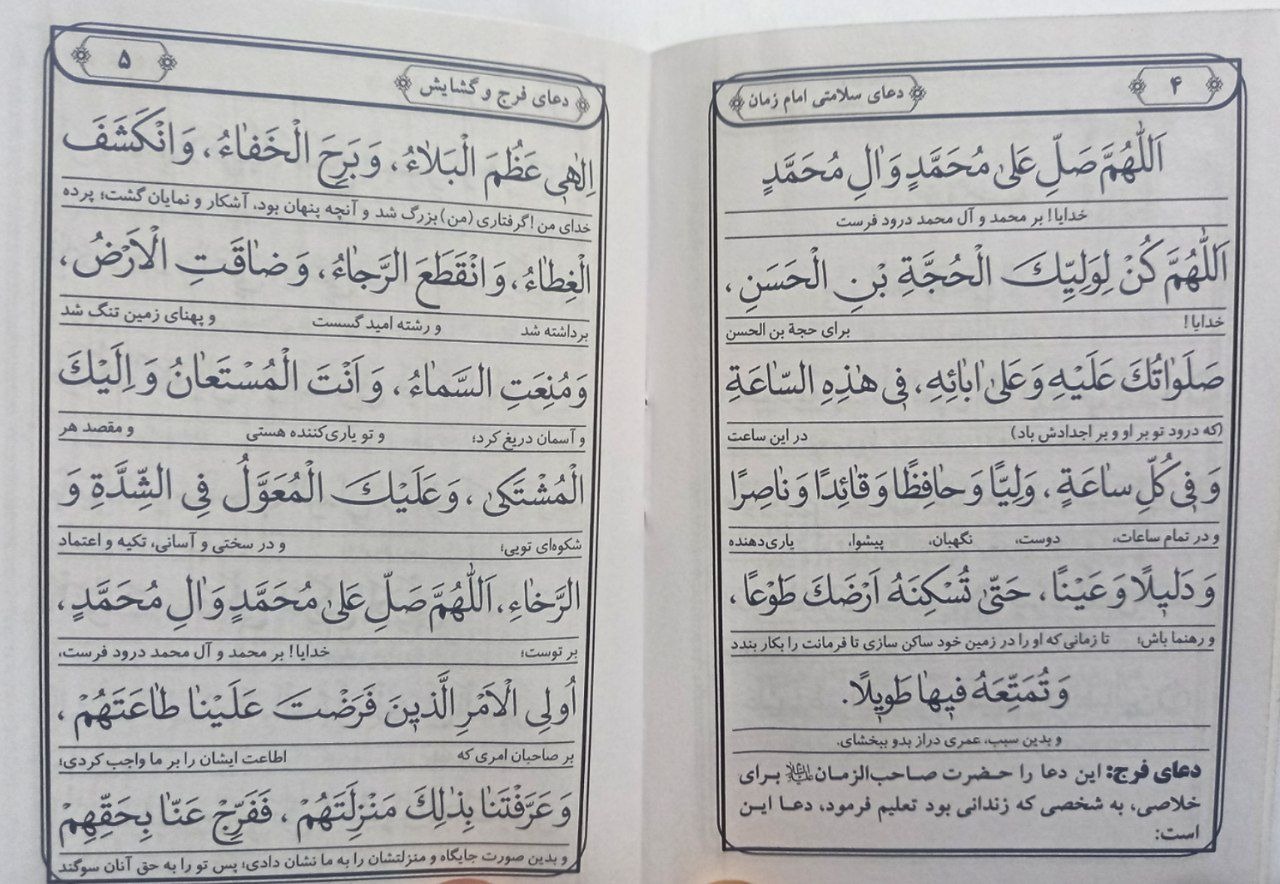 ۴
دعای سلامتی امام زمان
اَللّٰهُمَّ صَلِّ عَلیٰ مُحَمَّدٍ وَاٰلِ مُحَمَّدٍ
خدایا! بر محمد و آل محمد درود فرست
اَللّٰهُمَّ کُنْ لِوَلِیِّكَ الْحُجَّةِ بْنِ الْحَسَنِ ،
خدایا! برای حجة بن الحسن
صَلَوٰاتُكَ عَلَیْهِ وَعَلیٰ اٰبٰائِهِ، فِی هٰذِهِ السّٰاعَةِ
(که درود تو بر او و بر اجدادش باد) در این ساعت
وَ فِی کُلِّ سٰاعَةٍ ، وَلِیًّا وَ حٰافِظًا وَ قٰائِدًا وَ نٰاصِرًا
و در تمام ساعات، دوست، نگهبان، پیشوا، یاری‌دهنده
وَ دَلیٖلًا وَ عَیْنًا ، حَتّیٰ تُسْکِنَهُ اَرْضَكَ طَوْعًا ،
و رهنما باش؛ تا زمانی که او را در زمین خود ساکن سازی تا فرمانت را بکار بندد
وَ تُمَتِّعَهُ فیٖهٰا طَویٖلًا.
و بدین سبب، عمری دراز بدو ببخشای.
دعای فرج: این دعا را حضرت صاحب‌الزمان علیه‌السلام برای
خلاصی، به شخصی که زندانی بود تعلیم فرمود، دعا این
است:
۵
دعای فرج و گشایش
اِلٰهیٖ عَظُمَ الْبَلاٰءُ ، وَ بَرِحَ الْخَفٰاءُ ، وَ انْکَشَفَ
خدای من! گرفتاری (من) بزرگ شد و آنچه پنهان بود، آشکار و نمایان گشت؛ پرده
الْغِطٰاءُ ، وَ انْقَطَعَ الرَّجٰاءُ ، وَ ضٰاقَتِ الْاَرْضُ ،
برداشته شد و رشته امید گسست و پهنای زمین تنگ شد
وَ مُنِعَتِ السَّمٰاءُ ، وَ اَنْتَ الْمُسْتَعٰانُ وَ اِلَیْكَ
و آسمان دریغ کرد؛ و تو یاری‌کننده هستی و مقصد هر
الْمُشْتَکیٰ ، وَ عَلَیْكَ الْمُعَوَّلُ فِی الشِّدَّةِ وَ
شکوه‌ای تویی؛ و در سختی و آسانی، تکیه و اعتماد
الرَّخٰاءِ، اَللّٰهُمَّ صَلِّ عَلیٰ مُحَمَّدٍ وَاٰلِ مُحَمَّدٍ،
بر توست؛ خدایا! بر محمد و آل محمد درود فرست،
اُولِی الْاَمْرِ الَّذیٖنَ فَرَضْتَ عَلَیْنٰا طٰاعَتَهُمْ ،
بر صاحبان امری که اطاعت ایشان را بر ما واجب کردی؛
وَ عَرَّفْتَنٰا بِذٰلِكَ مَنْزِلَتَهُمْ ، فَفَرِّجْ عَنّٰا بِحَقِّهِمْ
و بدین صورت جایگاه و منزلتشان را به ما نشان دادی؛ پس تو را به حق آنان سوگند